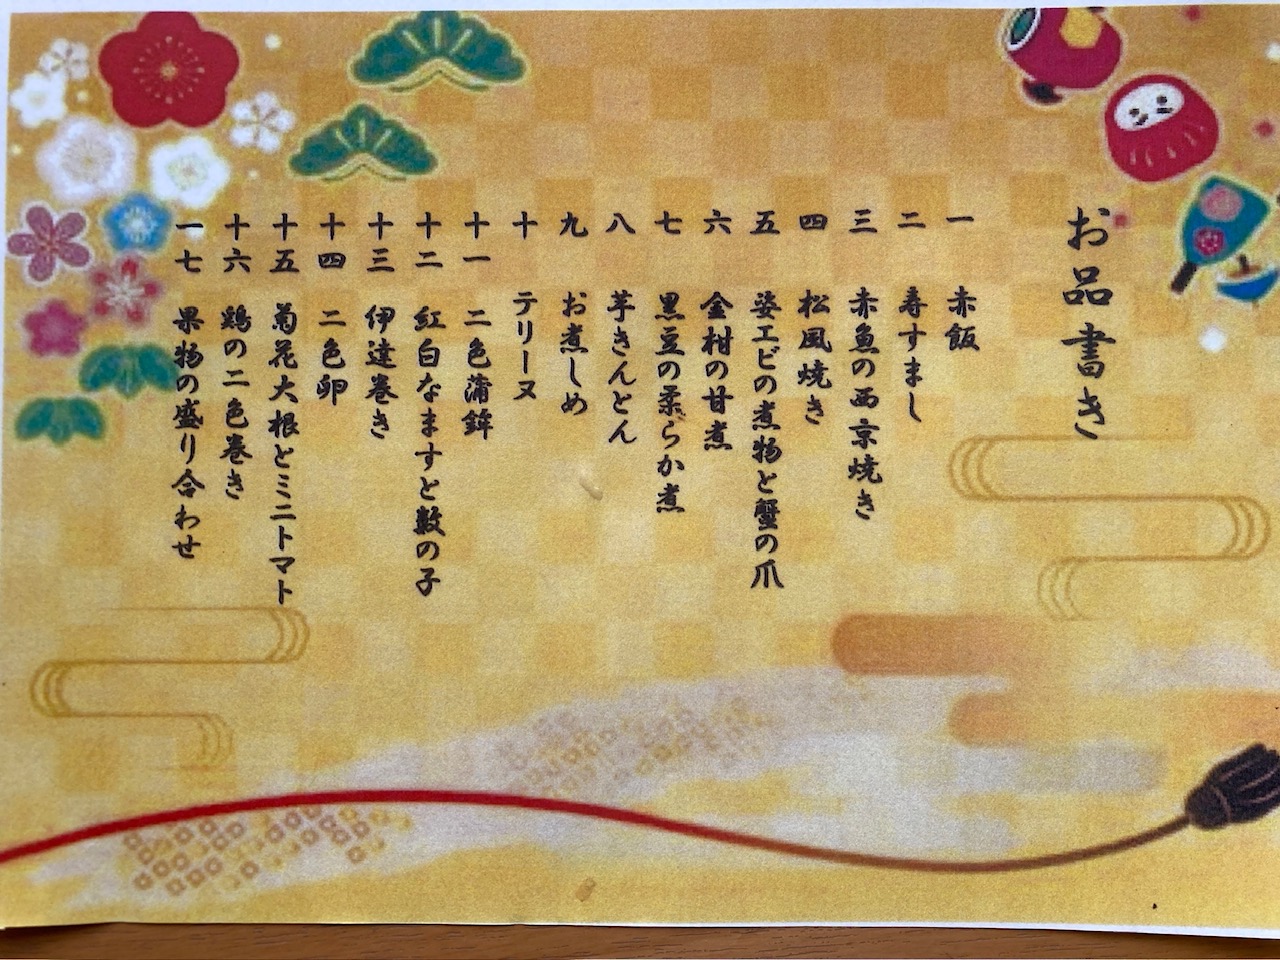 お品書き
一 赤飯
二 寿すまし
三 赤魚の西京焼き
四 松風焼き
五 姿エビの煮物と蟹の爪
六 金柑の甘煮
七 黒豆の柔らか煮
八 芋きんとん
九 お煮しめ
十 テリーヌ
十一 二色蒲鉾
十二 紅白なますと数の子
十三 伊達巻き
十四 二色卵
十五 菊花大根とミニトマト
十六 鶏の二色巻き
一七 果物の盛り合わせ